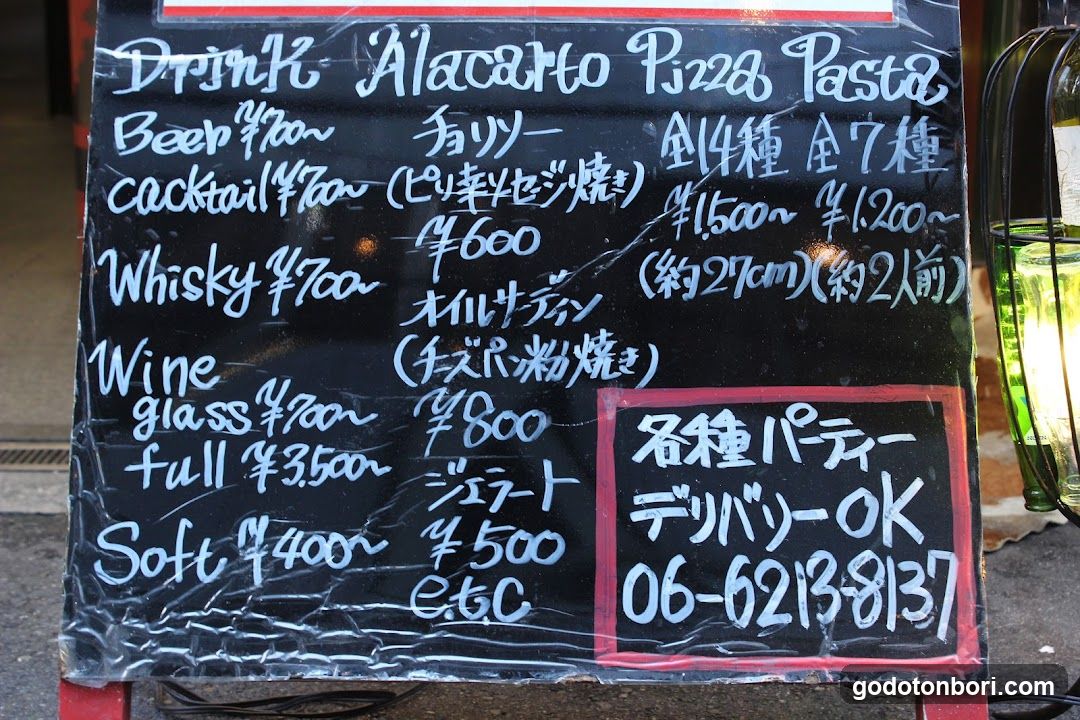 Drink Alacarto Pizza Pasta
Beer ¥700~
cacktail ¥700~
Whisky ¥700~
Wine
glass ¥700~
full ¥3,500~
Soft ¥400~
チョリソー
(ピリ辛ソセージ焼き)
¥600
オイルサーディン
(チーズパン粉焼き)
¥800
ジェラート
¥500
e.t.c
全14種
¥1,500~
(約27cm)
全7種
¥1.200~
(約2人前)
各種パーティー
デリバリーOK
06-6213-8137
godotonbori.com